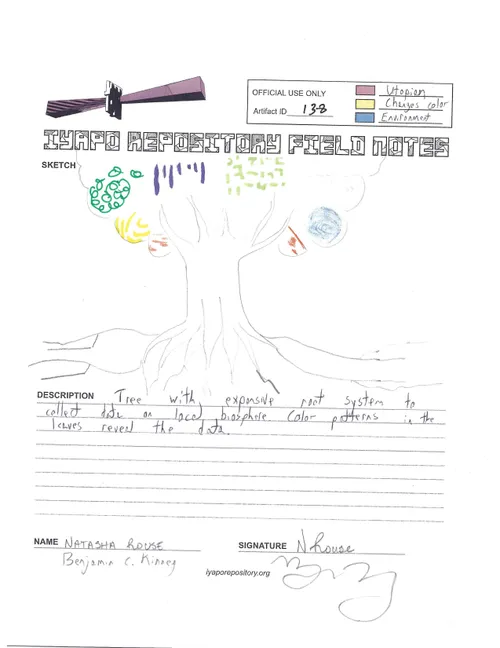 OFFICIAL USE ONLY
Artifact ID 138
Utopian
Changes color
Environment
IYAPO REPOSITORY FIELD NOTES
SKETCH
DESCRIPTION Tree with expansive root system to
collect data on local biosphere Color patterns in the
leaves reveal the data.
NAME NATASHA ROUSE
SIGNATURE NRouse
Benjamin C. Kinney
iyaporepository.org